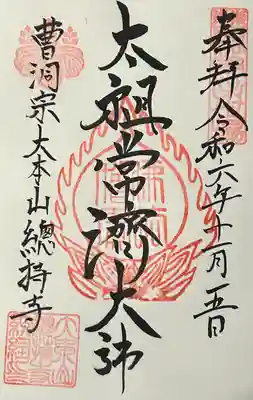 奉拝 令和六年十一月五日
太祖常濟大師
曹洞宗大本山總持寺